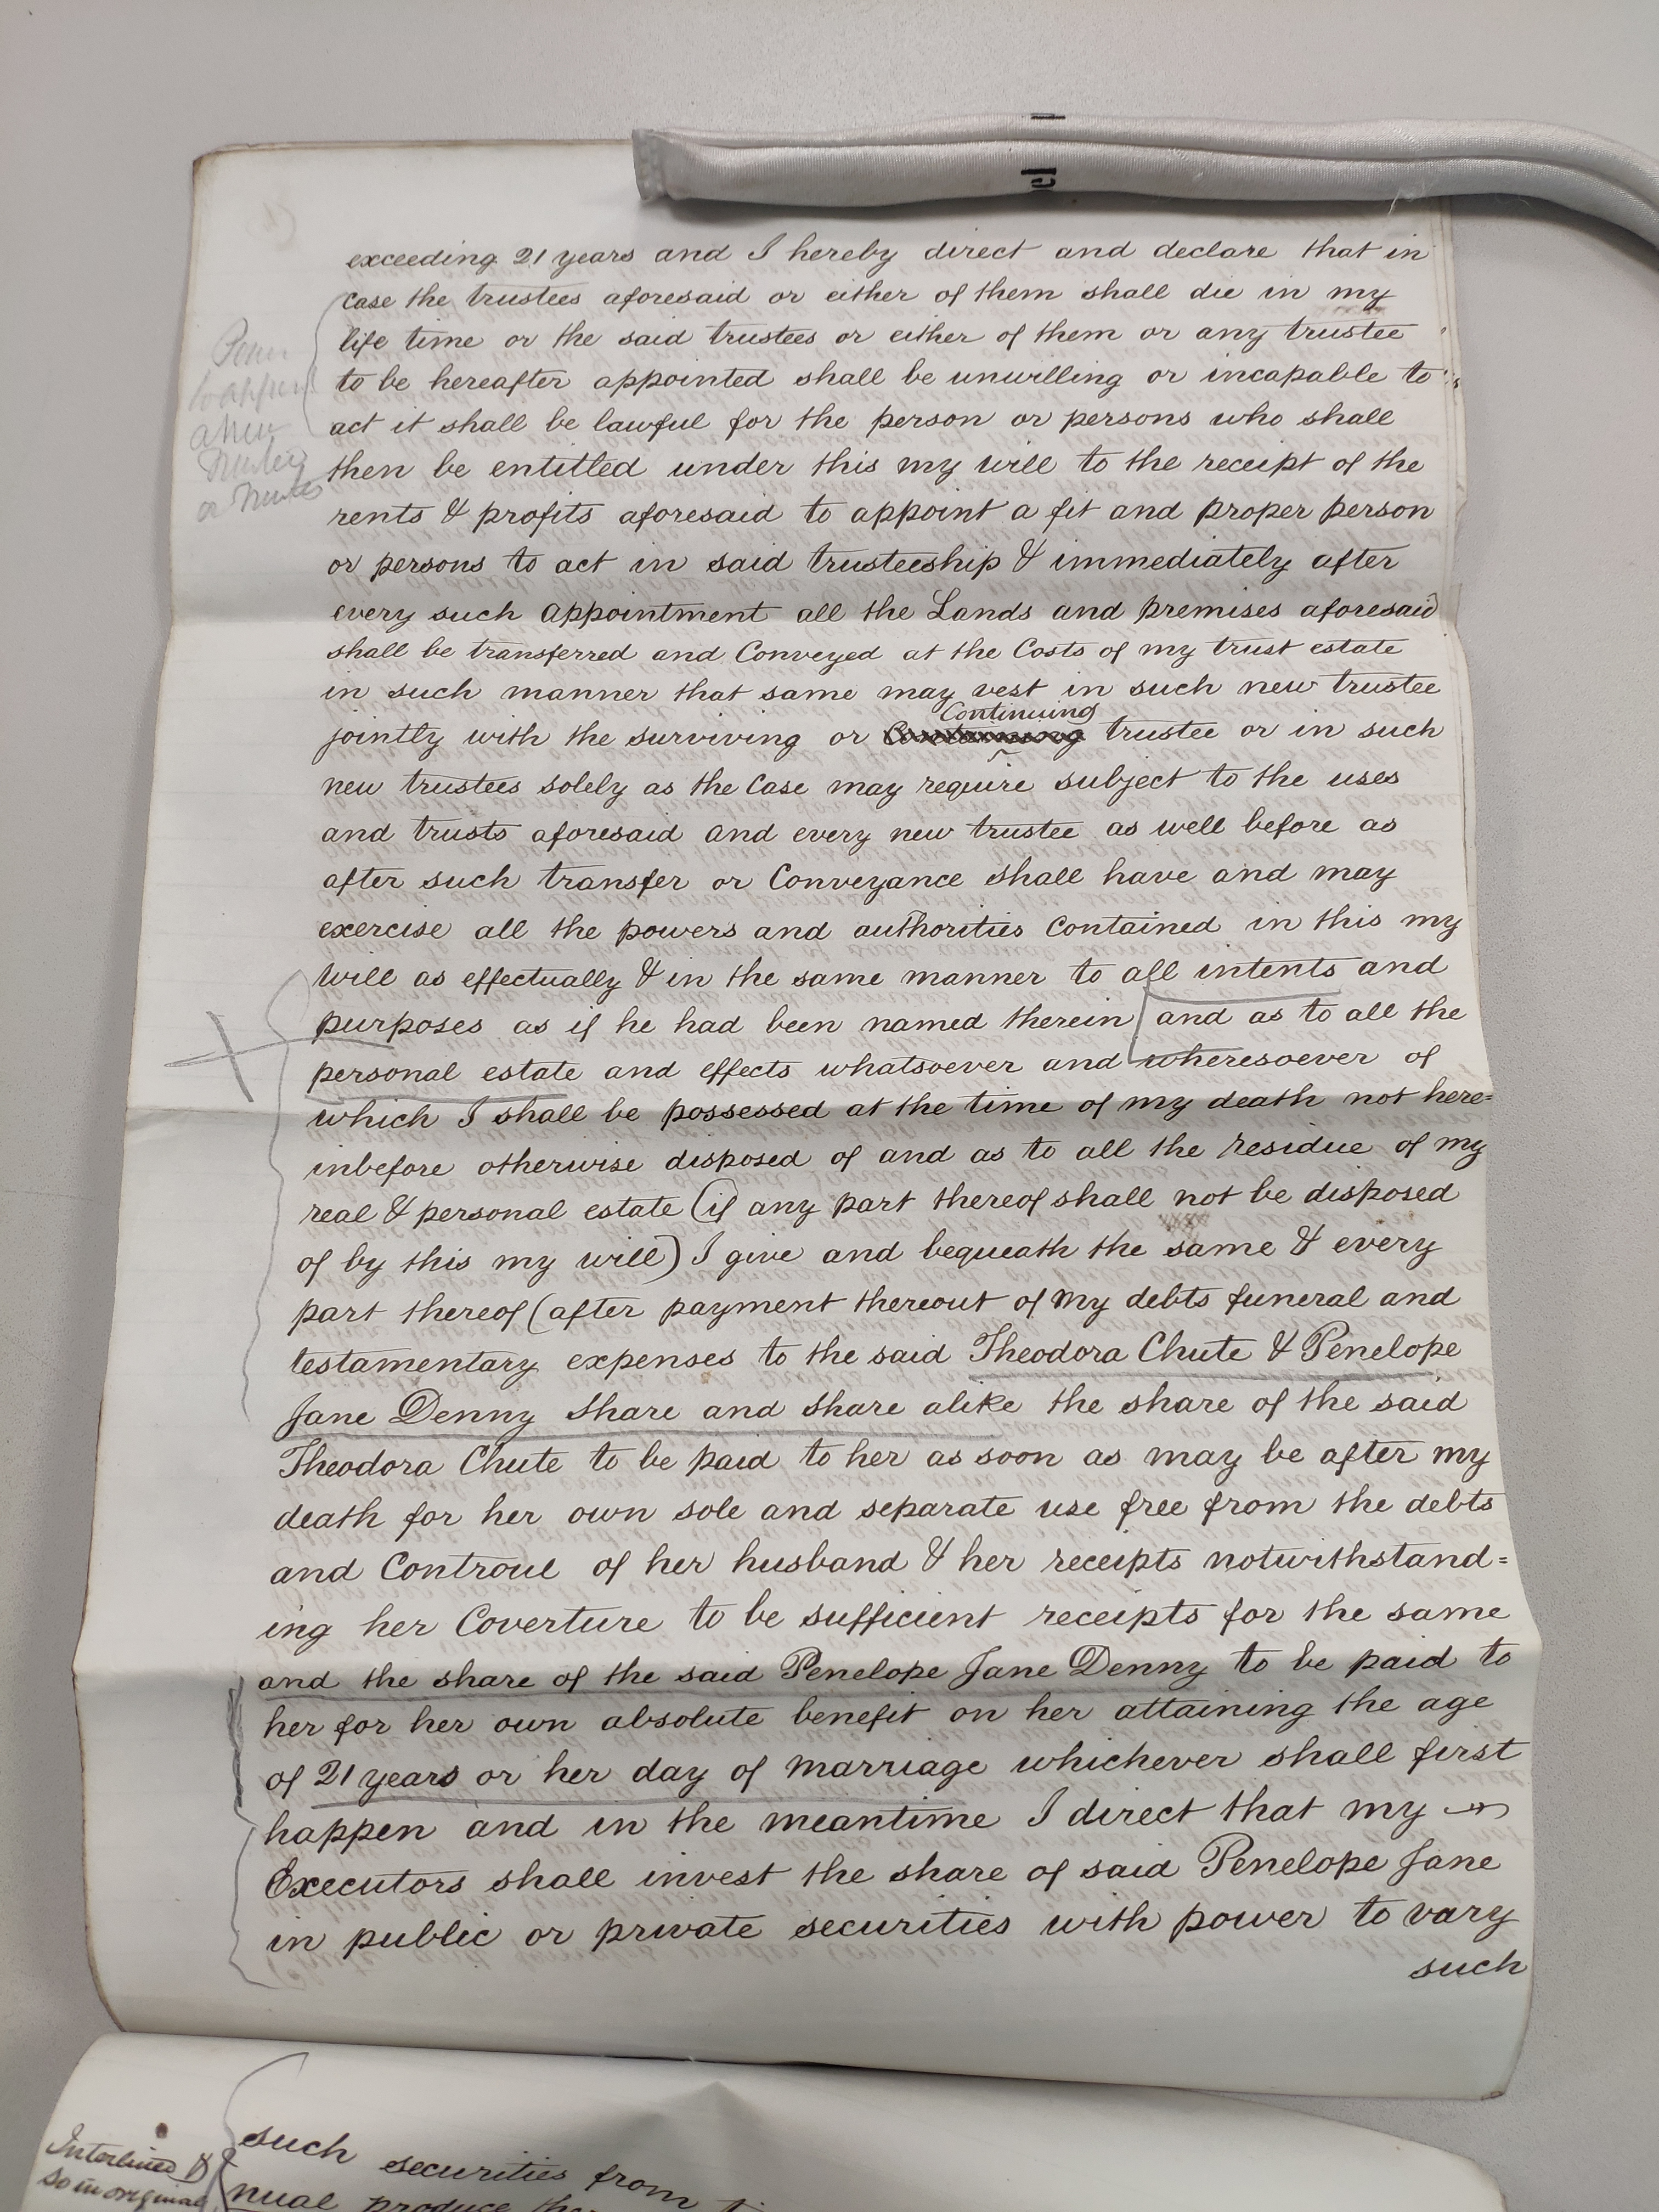 exceeding 21 years and I hereby direct and declare that in
case the trustees aforesaid or either of them shall die in my
life time or the said trustees or either of them or any trustee
to be hereafter appointed shall be unwilling or incapable to
act it shall be lawful for the person or persons who shall
then be entitled under this my will to the receipt of the
rents & profits aforesaid to appoint a fit and proper person
or persons to act in said trusteeship & immediately after
every such appointment all the Lands and premises aforesaid
shall be transferred and Conveyed at the Costs of my trust estate
in such manner that same may vest in such new trustee
Continuing
jointly with the surviving or trustee or in such
new trustees solely as the Case may require subject to the uses
and trusts aforesaid and every new trustee as well before as
after such transfer or Conveyance shall have and may
exercise all the powers and authorities Contained in this my
will as effectually & in the same manner to all intents and
purposes as if he had been named therein and as to all the
personal estate and effects whatsoever and wheresoever of
which I shall be possessed at the time of my death not here=
inbefore otherwise disposed of and as to all the residue of my
real & personal estate (if any part thereof shall not be disposed
of by this my will) I give and bequeath the same & every
part thereof (after payment thereout of my debts funeral and
testamentary expenses to the said Theodora Chute & Penelope
Jane Denny share and share alike the share of the said
Theodora Chute to be paid to her as soon as may be after my
death for her own sole and separate use free from the debts
and Controul of her husband & her receipts notwithstand=
ing her Coverture to be sufficient receipts for the same
and the share of the said Penelope Jane Denny to be paid to
her for her own absolute benefit on her attaining the age
of 21 years or her day of marriage whichever shall first
happen and in the meantime I direct that my
Executors shall invest the share of said Penelope Jane
in public or private securities with power to vary
such
a new
Trustee
or Trustees
Interlined
so in original
such securities from
nual produce
cl